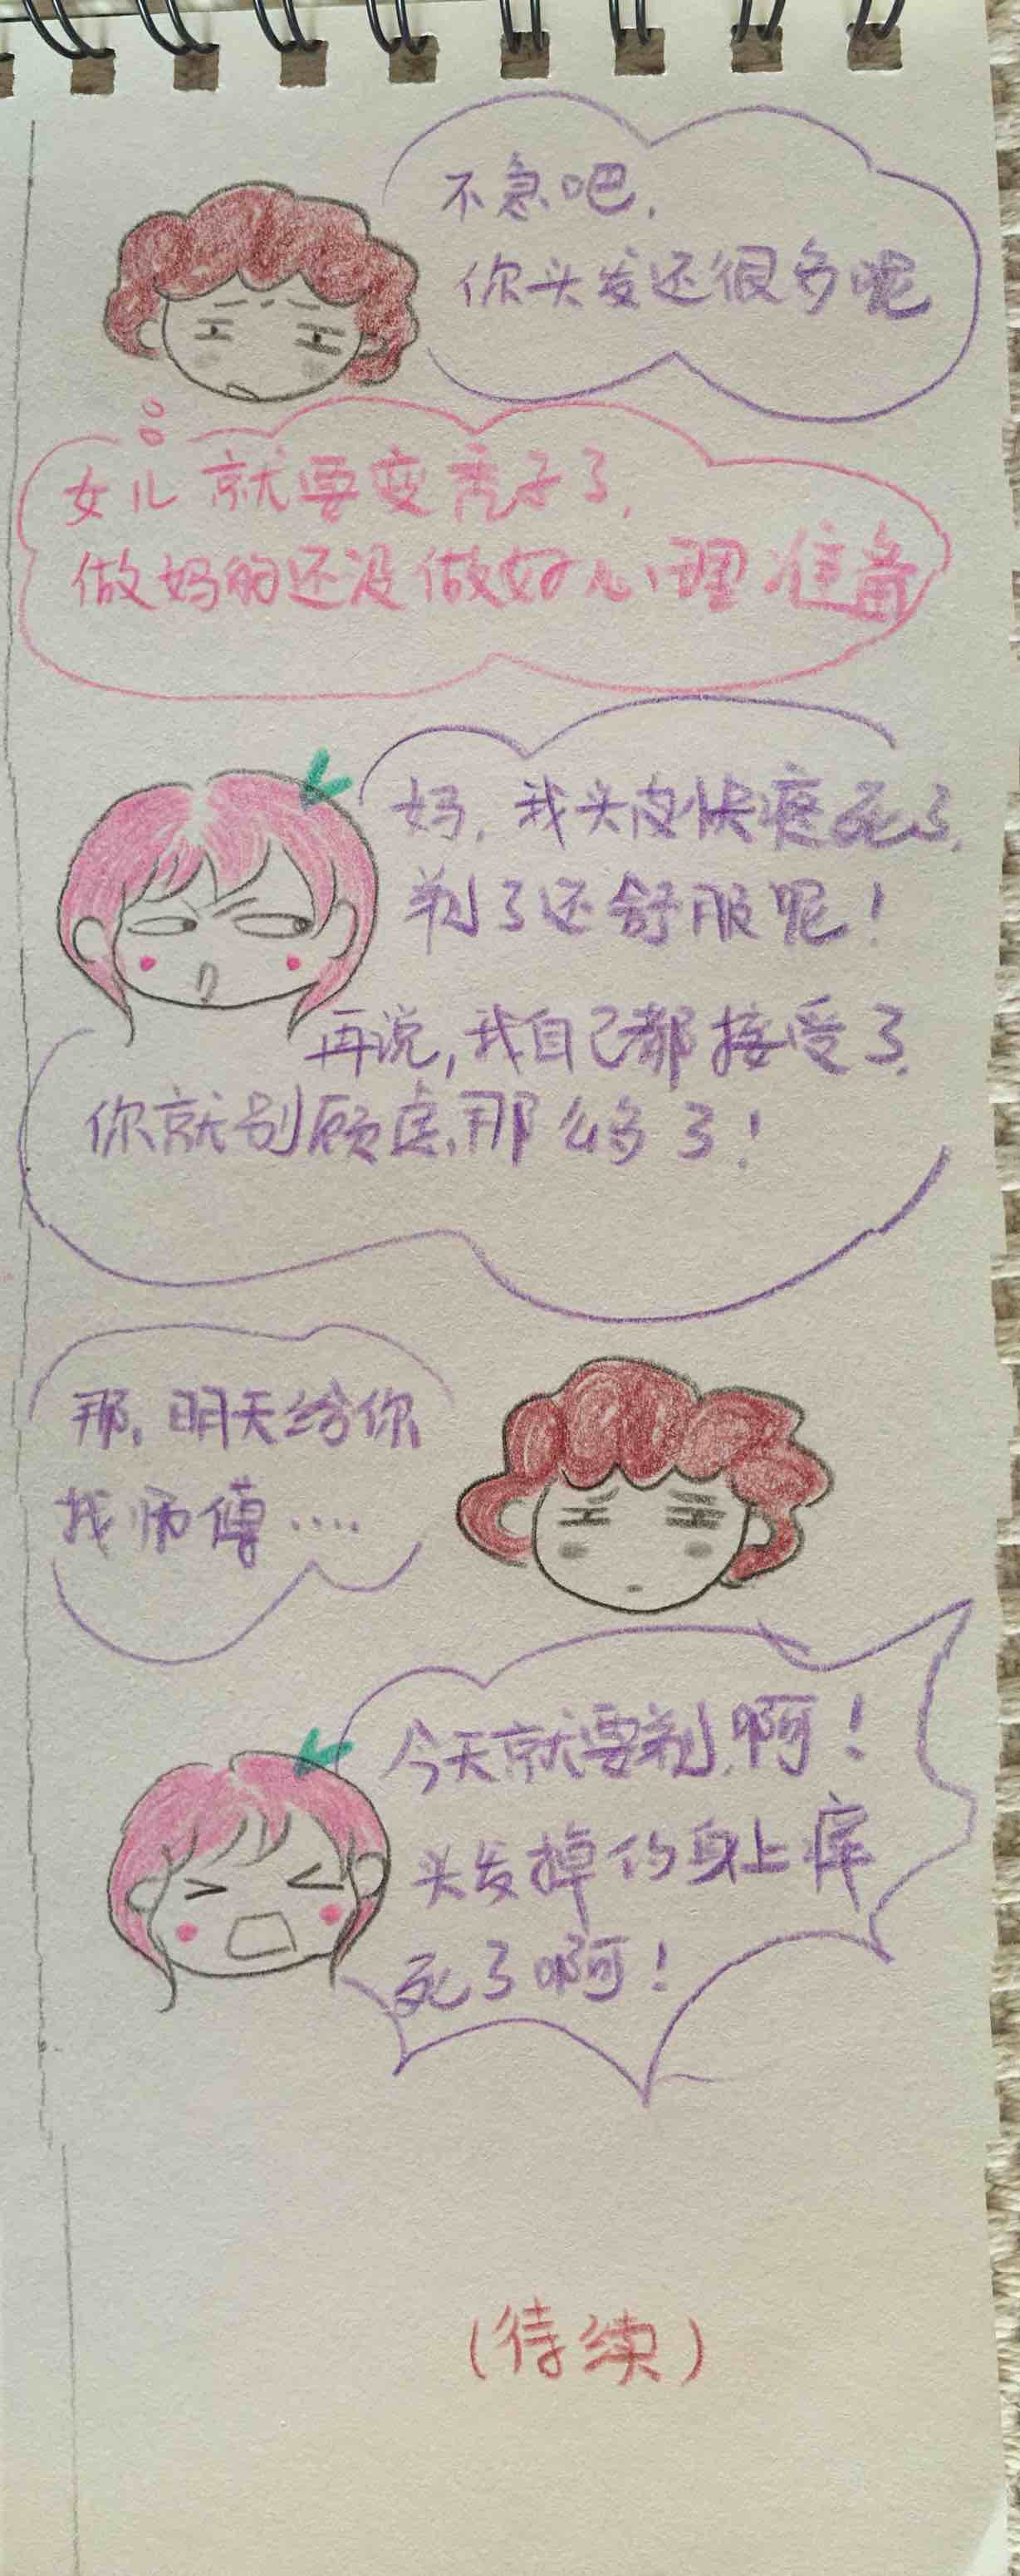 不急吧,
你头发还很多呢
女儿就要变秃子了,
做妈的还没做好心理准备
妈,我头皮快痒死了,
剃了还舒服呢!
再说,我自己都接受了,
你就别顾虑那么多了!
那,明天给你
找师傅....
今天就要剃啊!
头发掉的身上痒
死了啊!
(待续)